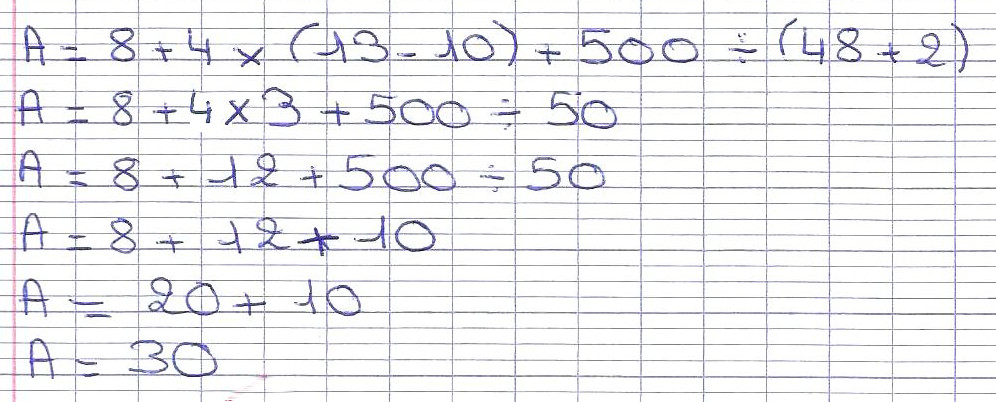 A = 8 + 4 × (13 - 10) + 500 ÷ (48 + 2)
A = 8 + 4 × 3 + 500 ÷ 50
A = 8 + 12 + 500 ÷ 50
A = 8 + 12 + 10
A = 20 + 10
A = 30